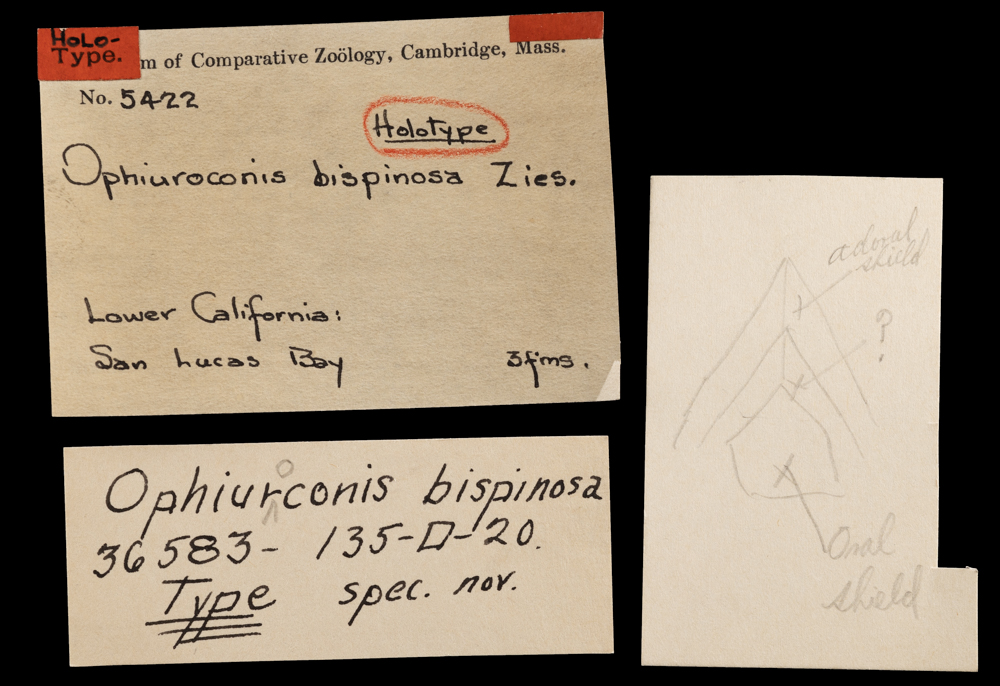 HoLo-
Type.
m of Comparative Zoölogy, Cambridge, Mass.
No. 5422
Holotype
Ophiuroconis bispinosa Zies.
Lower California:
San Lucas Bay 3fms.
Ophiuroconis bispinosa
36583- 135-D-20.
Type spec. nov.
adoral
shield
?
Oral
shield